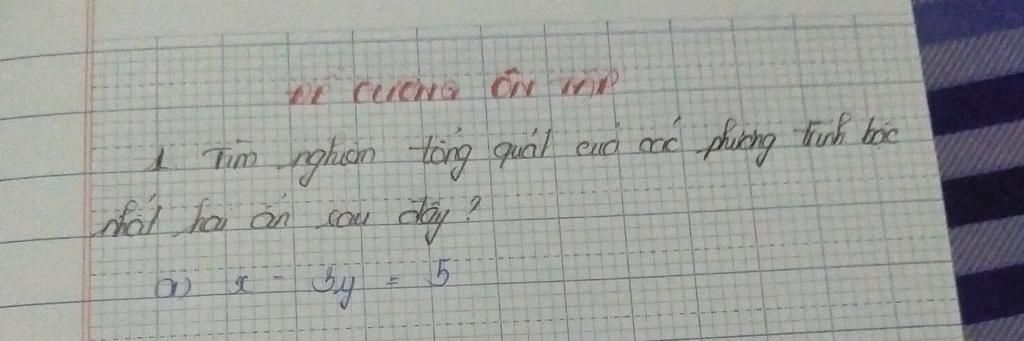 ĐỀ CƯƠNG ÔN TẬP
1. Tìm nghiệm tổng quát củả các phương trình bậc
nhất hai ẩn sau đây?
a) x - 3y = 5